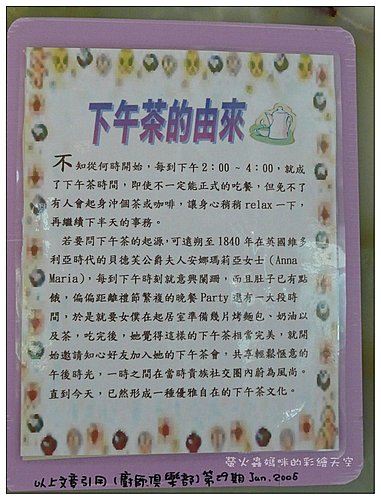 下午茶的由來
不知從何時開始，每到下午2：00～4：00，就成
了下午茶時間，即使不一定能正式的吃餐，但免不了
有人會起身沖個茶或咖啡，讓身心稍稍relax一下，
再繼續下半天的事務。
若要問下午茶的起源，可遠朔至1840年在英國維多
利亞時代的貝德芙公爵夫人安娜瑪莉亞女士（Anna
Maria），每到下午時刻就意興闌跚，而且肚子已有點
餓，偏偏距離禮節繁複的晚餐Party還有一大段時
間，於是就要女僕在起居室準備幾片烤麵包、奶油以
及茶，吃完後，她覺得這樣的下午茶相當完美，就開
始邀請知心好友加入她的下午茶會，共享輕鬆愜意的
午後時光，一時之間在當時貴族社交圈內蔚為風尚。
直到今天，已然形成一種優雅自在的下午茶文化。
螢火蟲媽咪的彩繪天空
以上文章引用（廚房俱樂部）第四期 Jan.2005